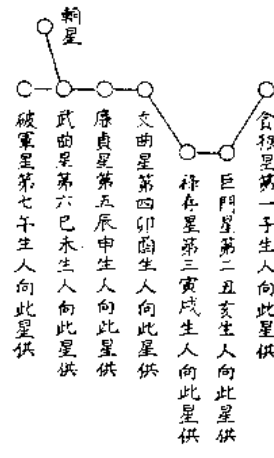 貪狼星第一子生人向此星供
巨門星第二丑亥生人向此星供
祿存星第三寅戌生人向此星供
文曲星第四卯酉生人向此星供
廉貞星第五辰申生人向此星供
武曲星第六巳未生人向此星供
破軍星第七午生人向此星供
輔星